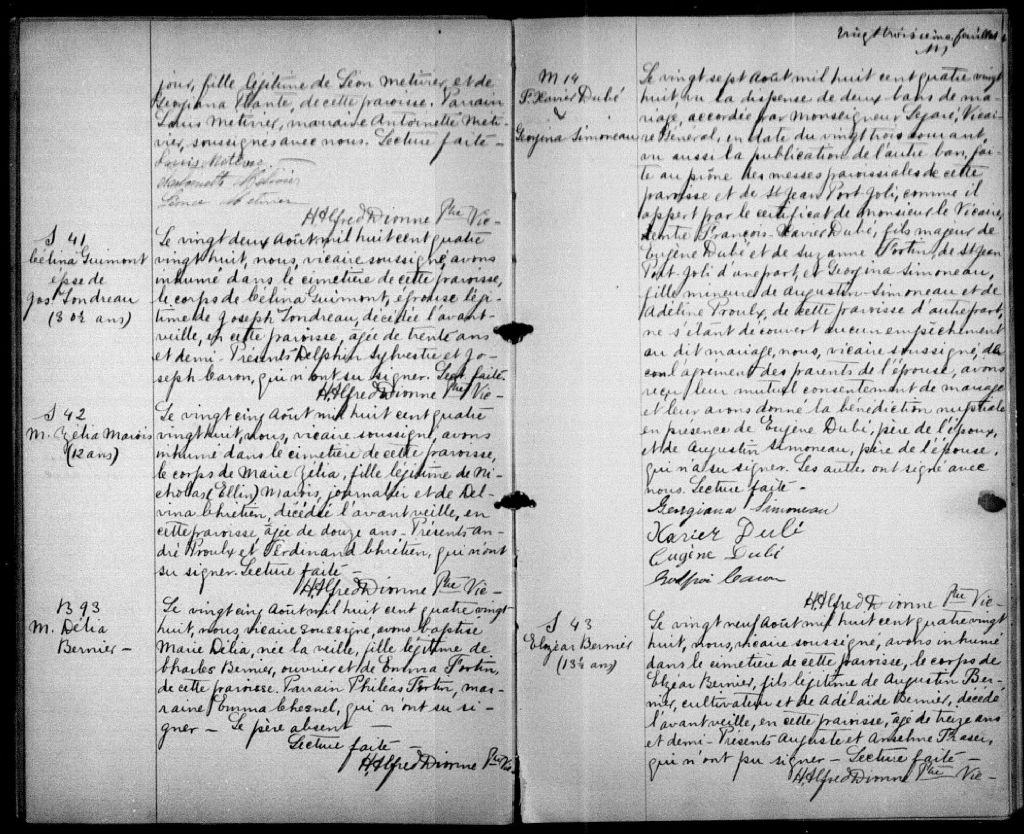 jour, fille légitime de Léon Metivier, et de
Georgiana Plante, de cette paroisse. Parrain
Louis Metivier, marraine Antoinette Meti-
vier, soussignés avec nous. Lecture faite -
Louis Metivier
Antoinette Metivier
Metivier
H. Alfred Dionne Ptre Vic-
S 41
Célina Guimont
épse de
Jos. Gondreau
(30½ ans)
Le vingt deux Août mil huit cent quatre
vingt huit, nous, vicaire soussigné, avons
inhumé dans le cimetière de cette paroisse,
le corps de Célina Guimont, épouse légi-
time de Joseph Gondreau, décédée l'avant-
veille, en cette paroisse, âgée de trente ans
et demi - Présents Delphin Sylvestre et Jo-
seph Caron, qui n'ont su signer. Lect. faite.
H. Alfred Dionne Ptre Vic-
S 42
M. Zélia Marois
(12 ans)
Le vingt cinq Août mil huit cent quatre
vingt huit, nous, vicaire soussigné, avons
inhumé dans le cimetière de cette paroisse,
le corps de Marie Zélia, fille légitime de Ni-
cholas (Ellin) Marois, journalier et de Del-
vina Chrétien, décédée l'avant veille, en
cette paroisse âgée de douze ans - Présents An-
dré Proulx et Ferdinand Chrétien, qui n'ont
su signer. Lecture faite -
H. Alfred Dionne Ptre Vic-
B 93
M. Délia
Bernier -
Le vingt cinq Août mil huit cent quatre vingt
huit, nous, vicaire soussigné, avons baptisé
Marie Délia, née la veille, fille légitime de
Charles Bernier, ouvrier et de Emma Fortin,
de cette paroisse. Parrain Philéas Fortin, mar-
raine Emma Chesnel, qui n'ont su si-
gner - Le père absent -
Lecture faite -
H. Alfred Dionne Ptre Vic-
vingt troisième feuillet
M 14
F. Xavier Dubé
&
Georgina Simoneau
Le vingt sept Août mil huit cent quatre vingt
huit, vu la dispense de deux bans de ma-
riage, accordée par Monseigneur Legaré, Vicai-
re Général, en date du vingt trois courant,
vu aussi la publication de l'autre ban, fai-
te au prône des messes paroissiales de cette
paroisse et de St Jean Port-Joli, comme il
appert par le certificat de monsieur le Vicaire,
entre François-Xavier Dubé, fils majeur de
Eugène Dubé et de Suzanne Fortin, de St Jean
Port-Joli d'une part, et Georgina Simoneau,
fille mineure de Augustin Simoneau et de
Adeline Proulx, de cette paroisse d'autre part,
ne s'étant découvert aucun empêchement
au dit mariage, nous, vicaire soussigné, du
con l'agrément des parents de l'épouse, avons
reçu leur mutuel consentement de mariage
et leur avons donné la bénédiction nuptiale
en présence de Eugène Dubé, père de l'époux,
et de Augustin Simoneau, père de l'épouse,
qui n'a su signer. Les autres ont signé avec
nous. Lecture faite -
Georgiana Simoneau
Xavier Dubé
Eugène Dubé
Godfroi Caron
H. Alfred Dionne Ptre Vic-
S 43
Elzéar Bernier
(13½ ans)
Le vingt neuf Août mil huit cent quatre vingt
huit, nous, vicaire soussigné, avons inhumé
dans le cimetière de cette paroisse, le corps de
Elzéar Bernier, fils légitime de Augustin Ber-
nier, cultivateur et de Adélaïde Bernier, décédé
l'avant veille, en cette paroisse, âgé de treize ans
et demi - Présents Auguste et Anselme Fraser,
qui n'ont pu signer - Lecture faite -
H. Alfred Dionne Ptre Vic-